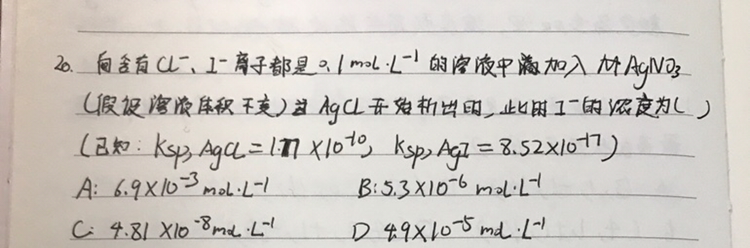 20. 向含有Cl⁻、I⁻离子都是0.1mol·L⁻¹的溶液中滴加入AgNO₃
(假设溶液体积不变)当AgCl开始析出时,此时I⁻的浓度为( )
(已知:Ksp,AgCl=1.77×10⁻¹⁰, Ksp,AgI=8.52×10⁻¹⁷)
A: 6.9×10⁻³mol·L⁻¹ B:5.3×10⁻⁶ mol·L⁻¹
C: 4.81×10⁻⁸mol·L⁻¹ D 4.9×10⁻⁵ mol·L⁻¹